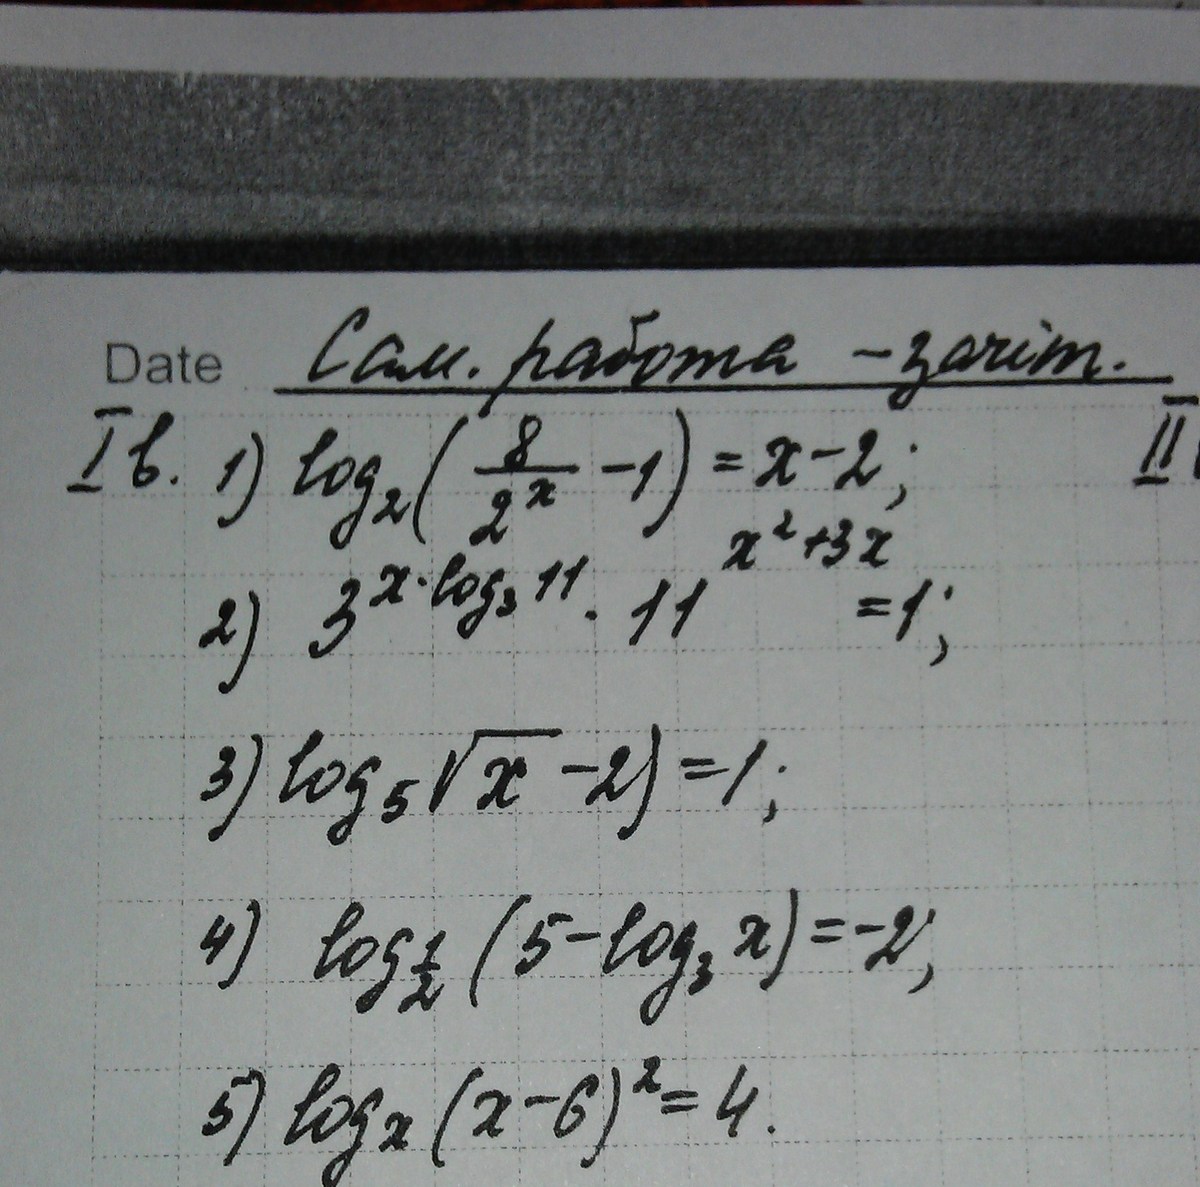 Date Сам. работа - зачіт.
I в. 1) log₂(8/2ˣ - 1) = x - 2; II
2) 3^(x·log₃11) · 11^(x²+3x) = 1;
3) log₅√x - 2) = 1;
4) log_(1/2) (5 - log₃ x) = -2;
5) logₓ (x - 6)² = 4.